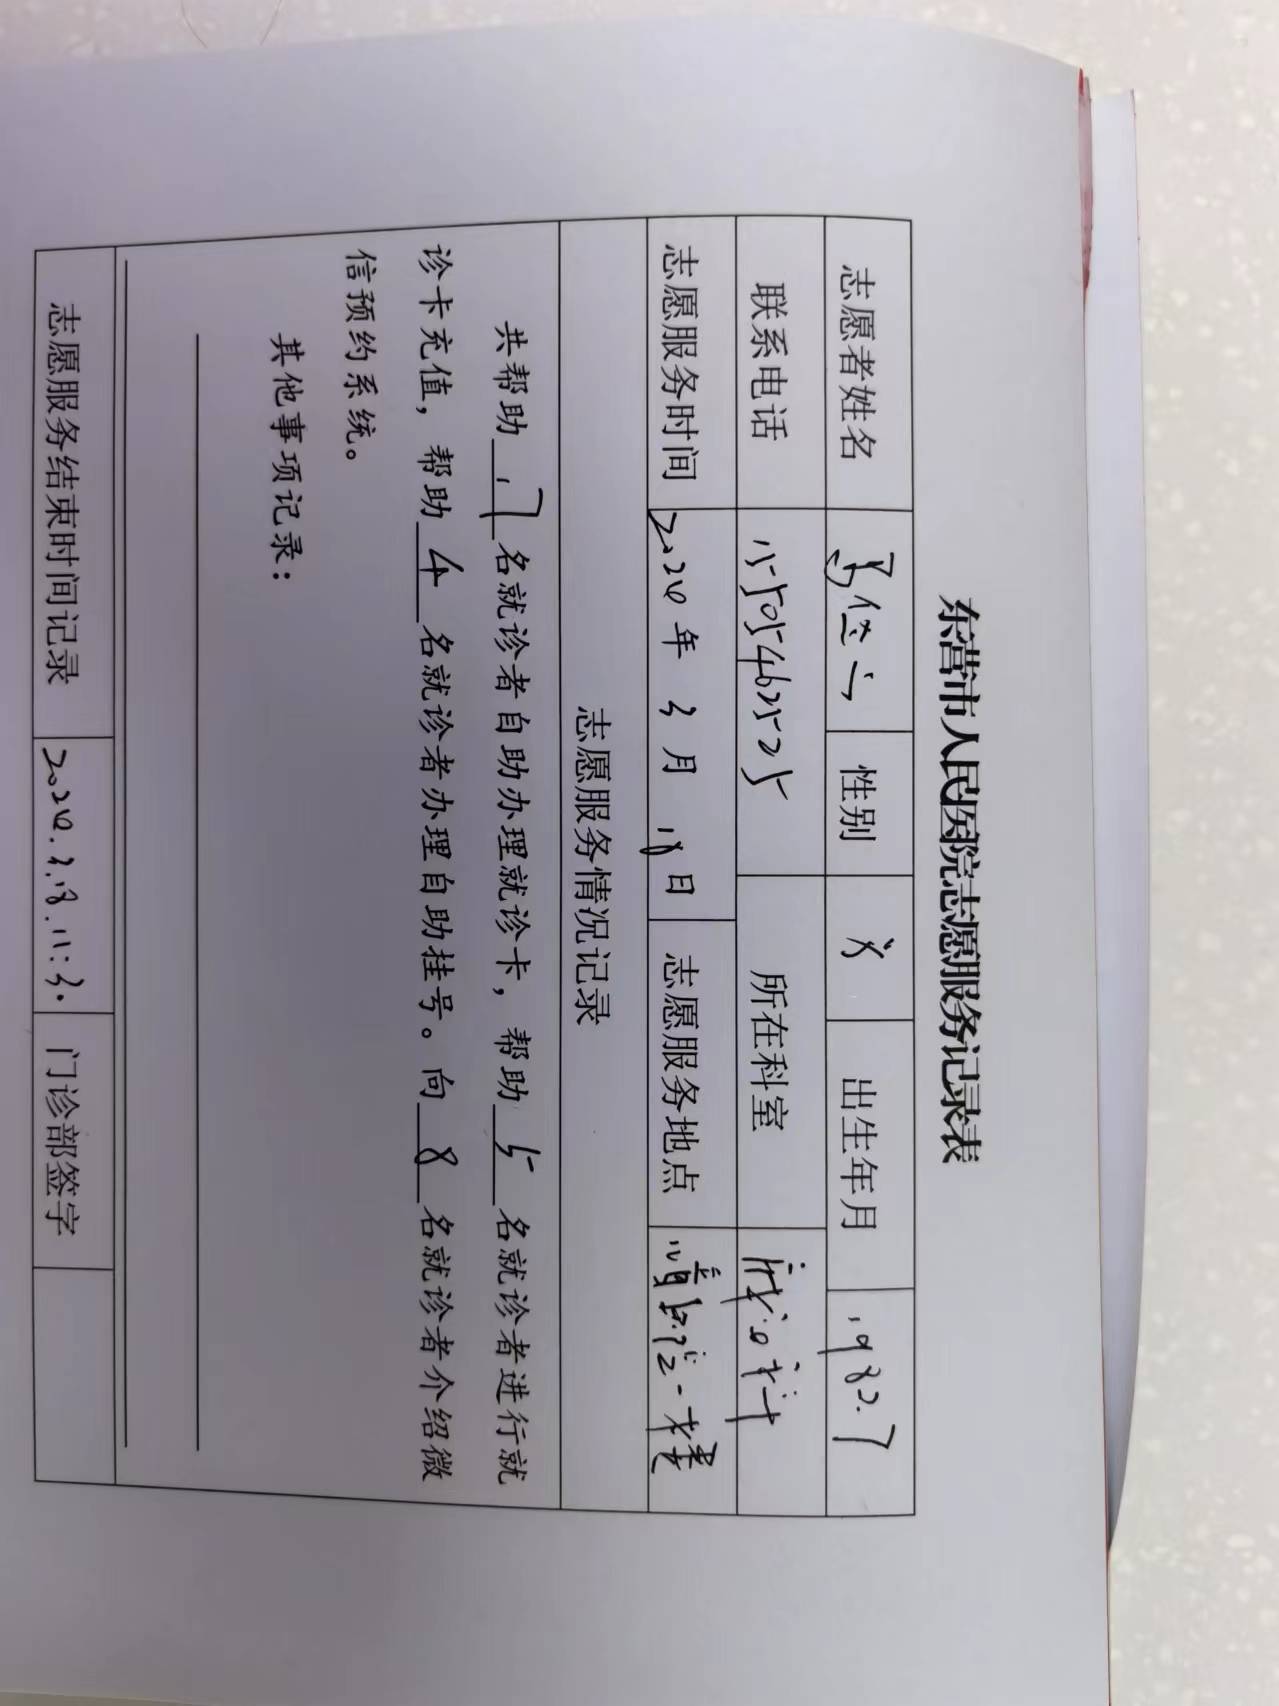 东营市人民医院志愿服务记录表
志愿者姓名 性别 女 出生年月 1982.7
联系电话 15505462525 所在科室
志愿服务时间 2024年3月18日 志愿服务地点 一楼
志愿服务情况记录
共帮助 17 名就诊者自助办理就诊卡，帮助 5 名就诊者进行就
诊卡充值，帮助 4 名就诊者办理自助挂号。向 8 名就诊者介绍微
信预约系统。
其他事项记录：
志愿服务结束时间记录 2024.3.18.11:30 门诊部签字